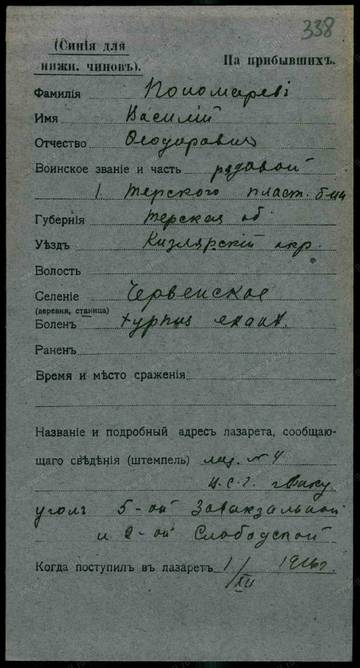 338
(Синія для
нижн. чиновъ).
На прибывшихъ.
Фамилія Пономаревъ
Имя Василій
Отчество Ѳеодоровичъ
Воинское званіе и часть рядовой
1. Терского пласт. б-на
Губернія Терская об
Уѣздъ Кизлярскій окр.
Волость
Селеніе Червенское
(деревня, станица)
Боленъ
Раненъ
Время и мѣсто сраженія
Названіе и подробный адресъ лазарета, сообщаю-
щаго свѣдѣнія (штемпель) лаз. № 4
г. Баку
уголъ 5-ой Завокзальной
и 2-ой Слободской
Когда поступилъ въ лазаретъ 1/XII 1916 г.